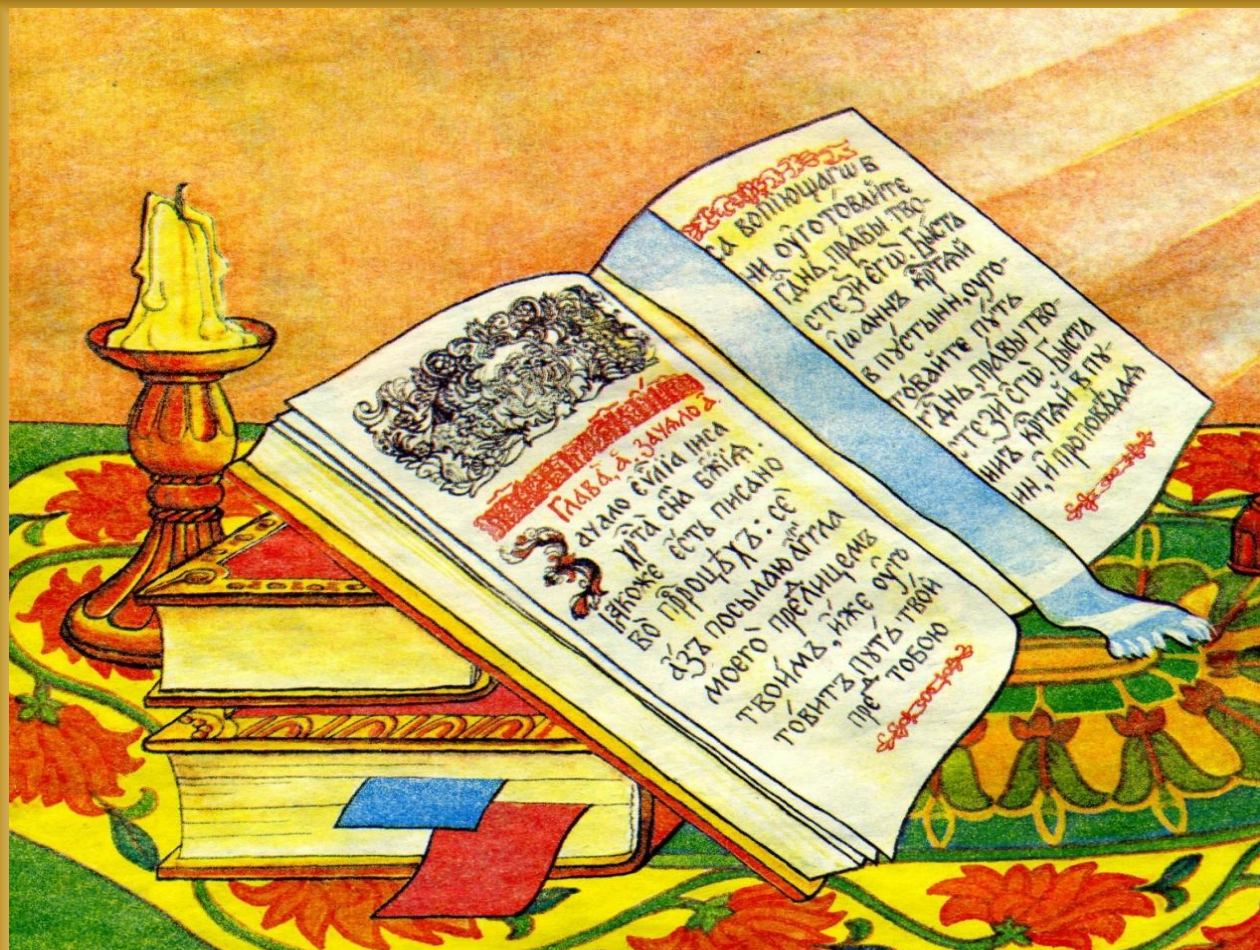 Глава̀, а҃, зачало а҃.
Зачало є҆ѵⷢ҇лїа і҆и҃са
хрⷭ҇та̀ сн҃а бж҃їѧ
ꙗ҆́коже є҆́сть писано
во прⷪ҇ро́цѣхъ: сѐ
а҆́зъ посылаю а҆́гг҃ла
моего̀ пред̾ лицемъ
твои́мъ, и҆́же ᲂу҆гᲂ
то́витъ пꙋ́ть тво́й
пред̾ тобою
са вопїющагѡ в
ни ᲂу҆гото́вайте
гдⷭ҇нь, пра́вы тво-
стези̑ є҆гѡ̀. Бы́сть
Їѡаннъ крⷭ҇тѧ́й
в пꙋ́стыни, ᲂуго-
то́вайте пꙋ́ть
гдⷭ҇нь, пра́вы тво-
стези̑ є҆гѡ̀. Бы́сть
ннъ крⷭ҇тѧ́й в пꙋ-
ни, и҆ проповѣ́даѧ